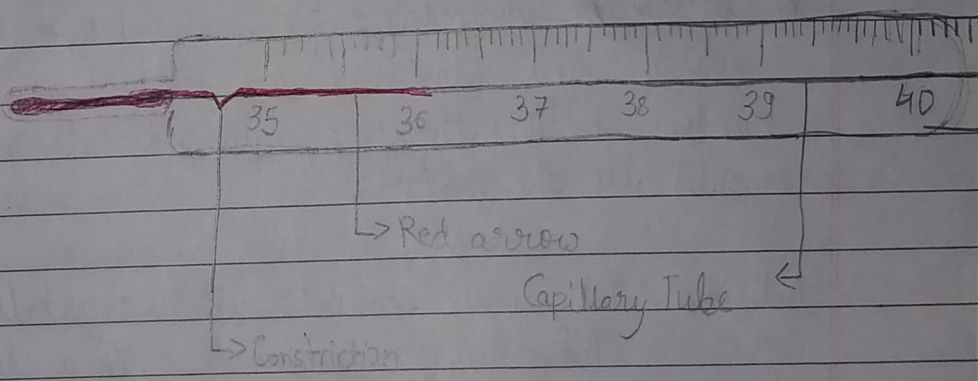 35 36 37 38 39 40
Red arrow
Capillary Tube
Constriction